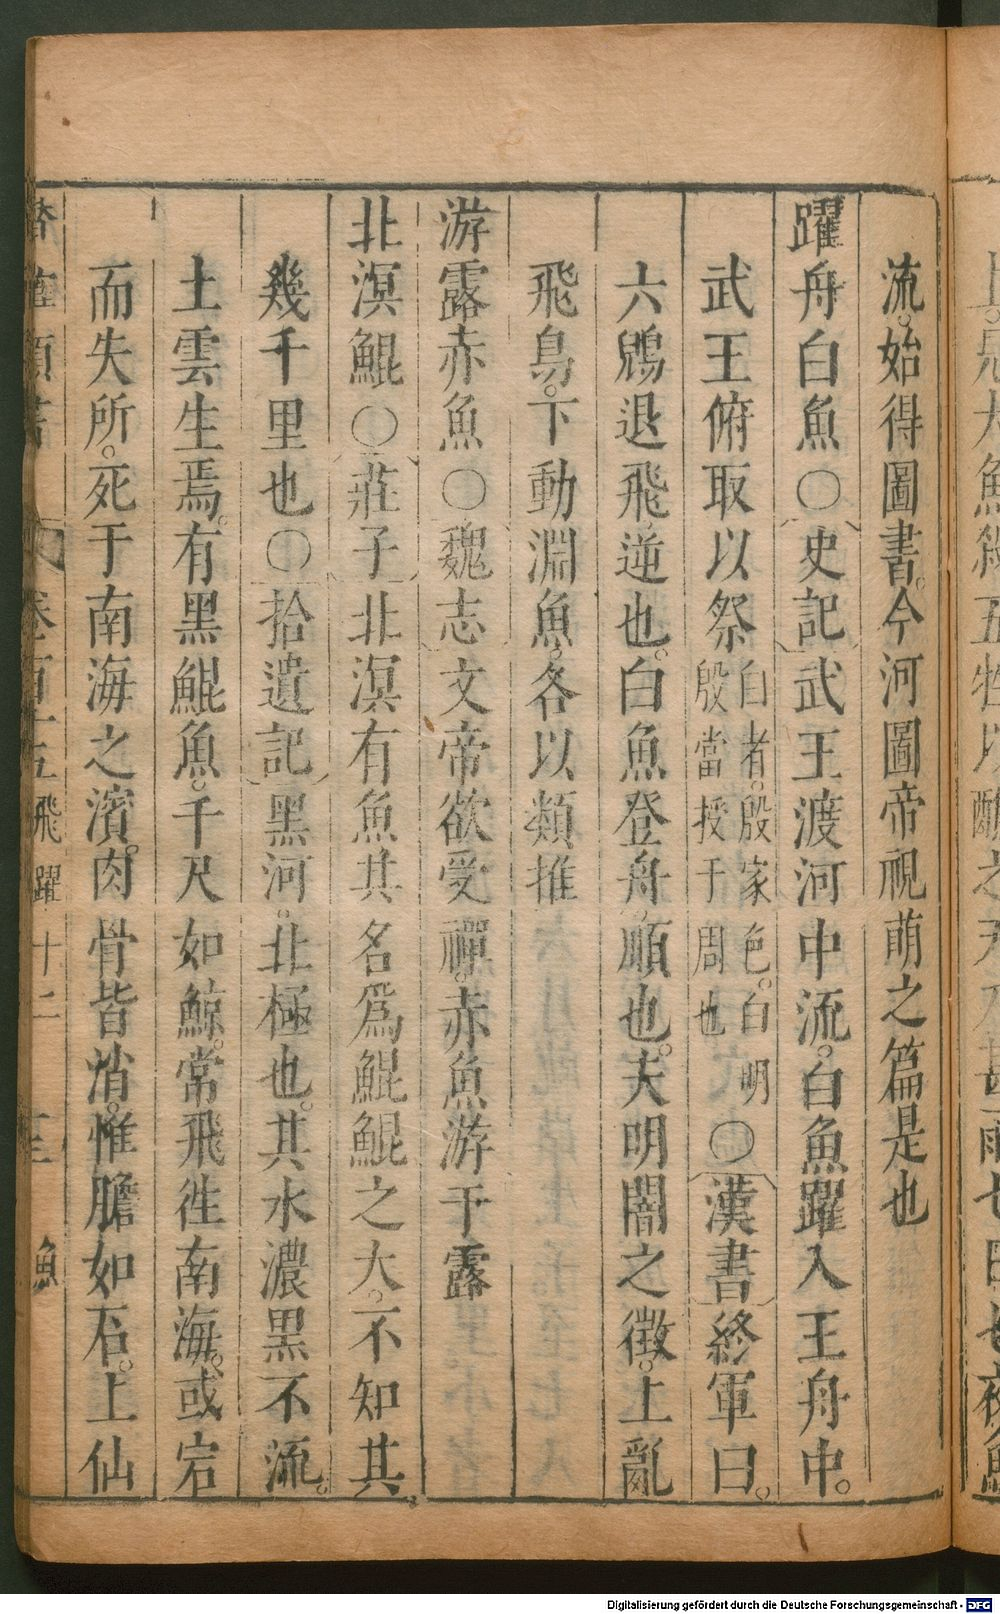 流。始得圖書。今河圖帝視萠之篇是也
躍舟白魚○史記武王渡河中流。白魚躍入王舟中。
武王俯取以祭白者。殷家色。白明殷當授于周也○漢書終軍曰。
六鶂退飛。逆也。白魚登舟。順也。夫明闇之徵。上亂
飛鳥。下動淵魚。各以類推
游露赤魚○魏志文帝欲受禪。赤魚游于露
北溟鯤○莊子北溟有魚其名爲鯤鯤之大。不知其
幾千里也○拾遺記黑河。北極也。其水濃黑不流。
土雲生焉。有黑鯤魚。千尺如鯨。常飛徃南海。或宕
而失所。死于南海之濱。肉骨皆消。惟膽如石。上仙
卷百十五飛躍十二 魚
Digitalisierung gefördert durch die Deutsche Forschungsgemeinschaft - DFG